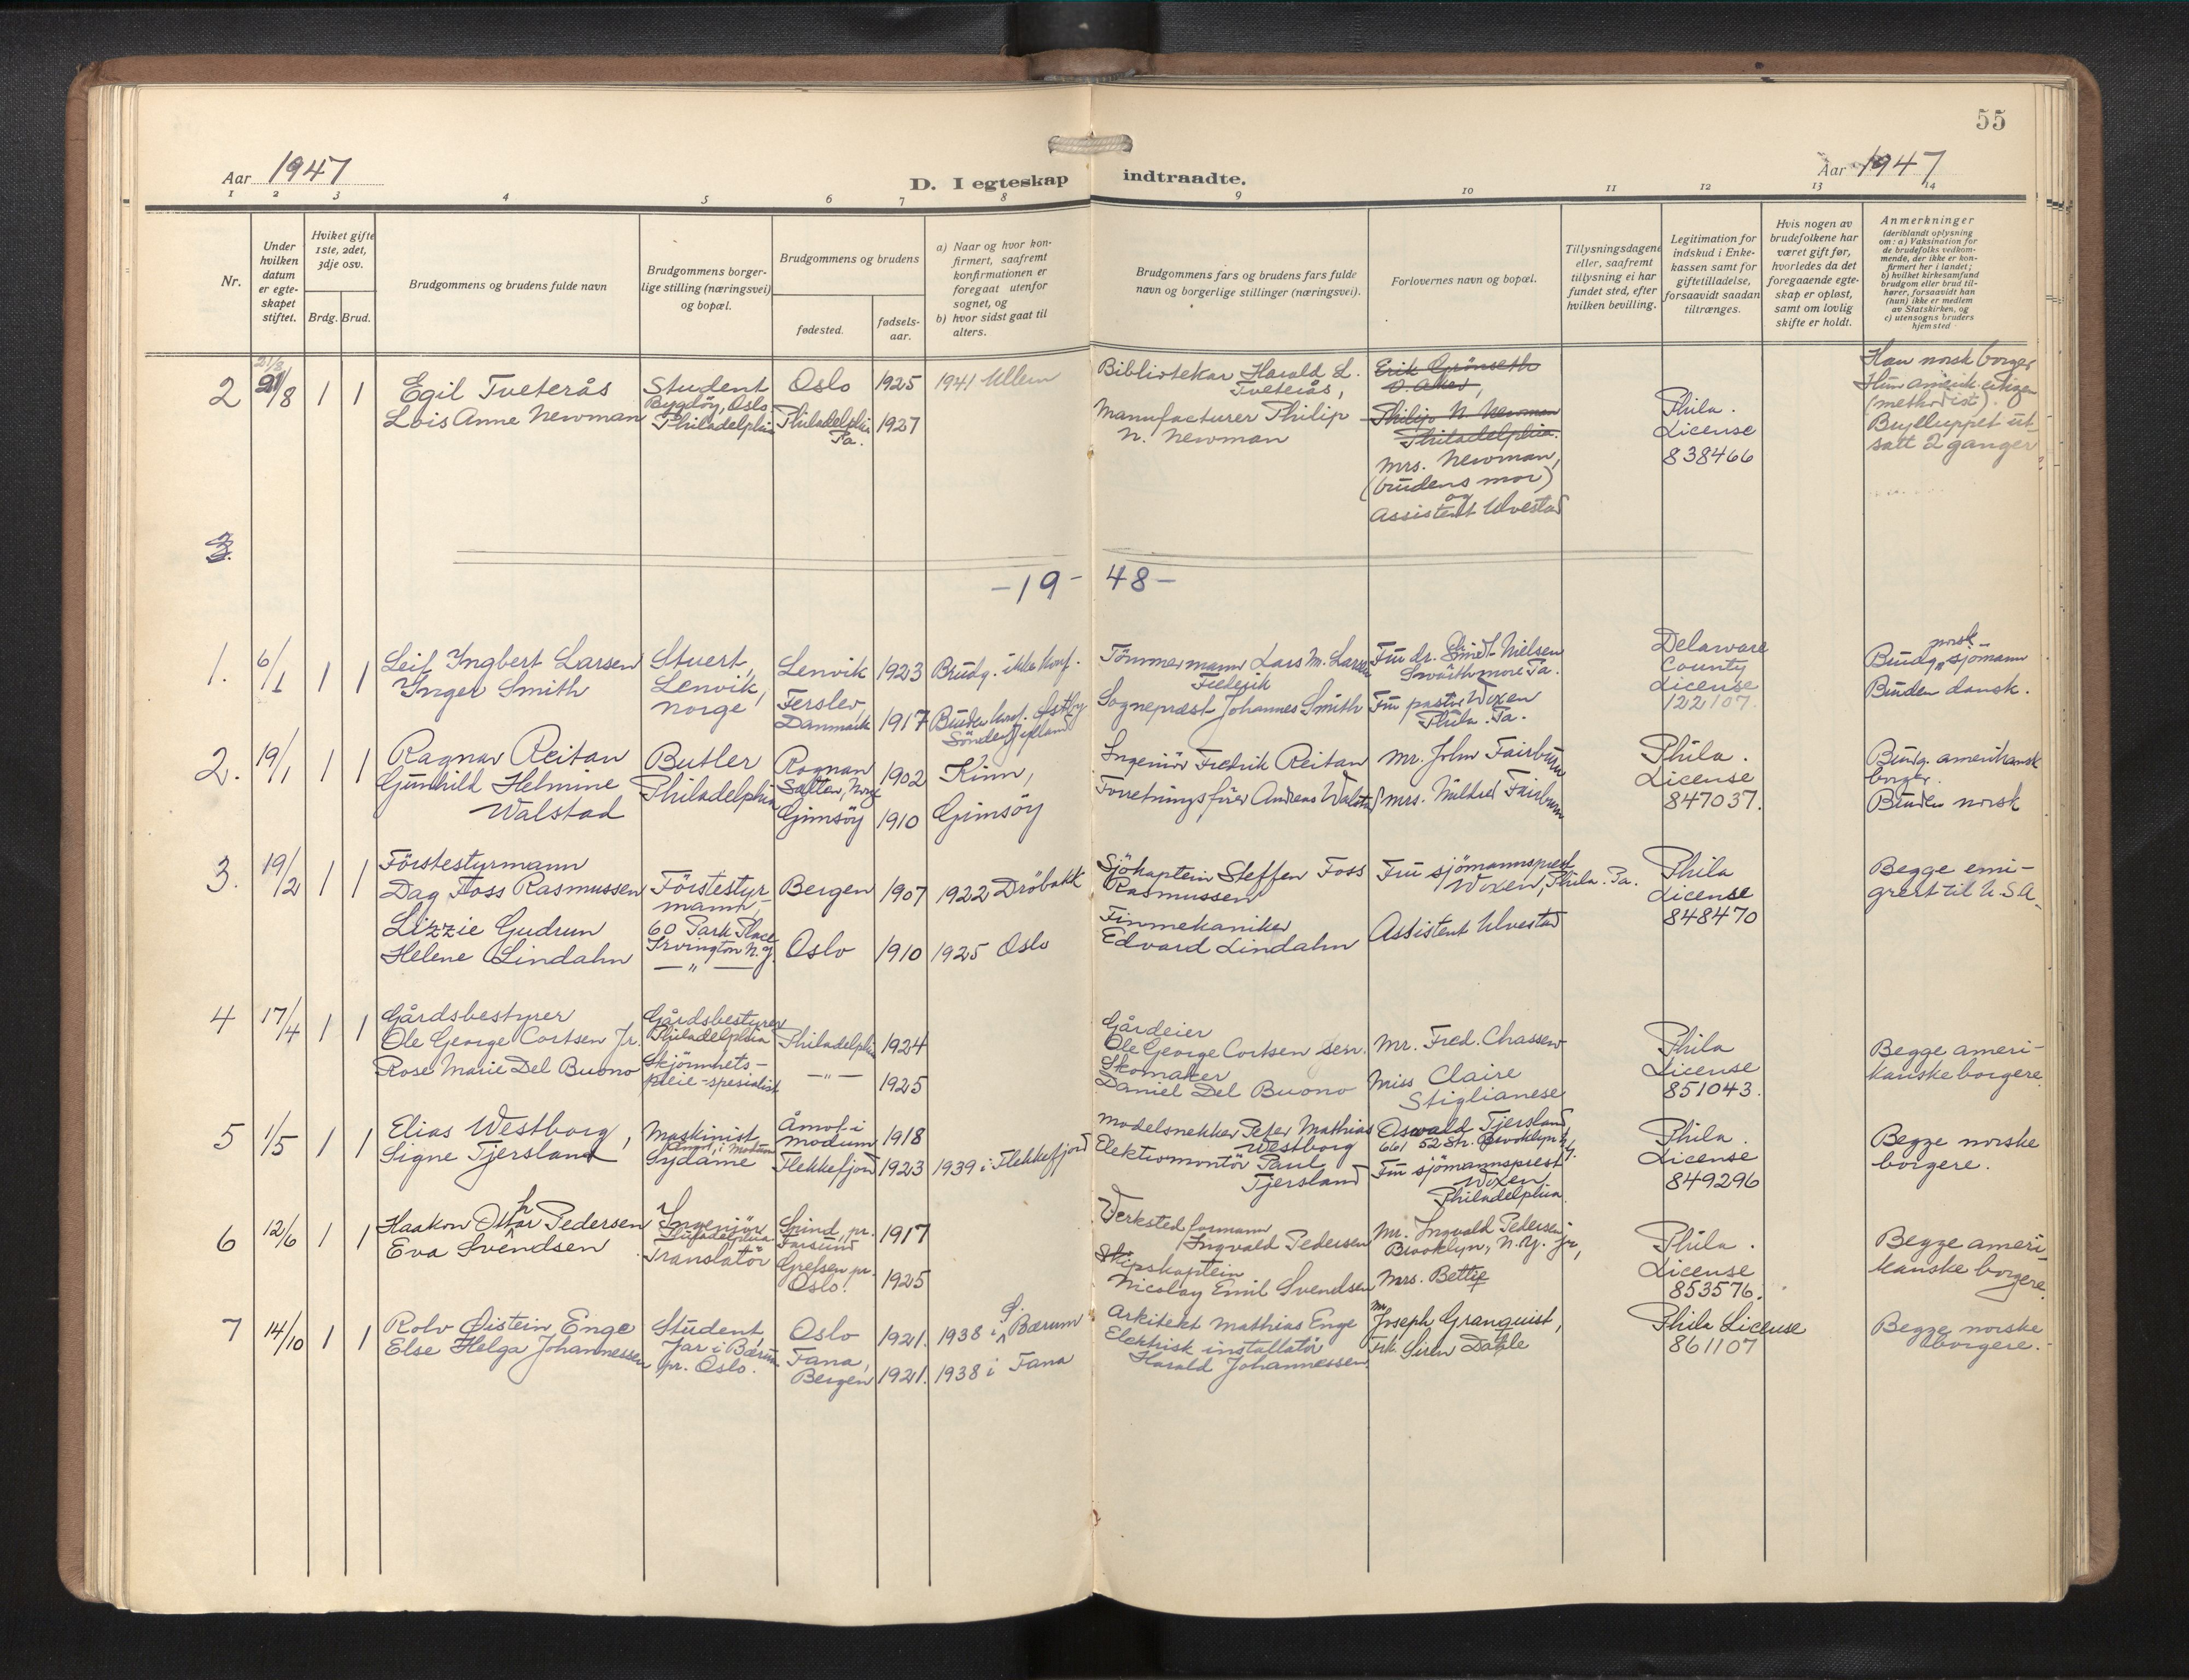 55
Aar 1947
D. I egteskap indtraadte.
Aar 1947
1 2 3 4 5 6 7 8 9 10 11 12 13 14
Nr.
Under hvilken datum er egteskapet stiftet.
Hviket gifte 1ste, 2det, 3dje osv.
Brdg. Brud.
Brudgommens og brudens fulde navn
Brudgommens borgerlige stilling (næringsvei) og bopæl.
Brudgommens og brudens
fødested.
fødselsaar.
a) Naar og hvor konfirmert, saafremt konfirmationen er foregaat utenfor sognet, og
b) hvor sidst gaat til alters.
Brudgommens fars og brudens fars fulde navn og borgerlige stillinger (næringsvei).
Forlovernes navn og bopæl.
Tillysningsdagene eller, saafremt tillysning ei har fundet sted, efter hvilken bevilling.
Legitimation for indskud i Enkekassen samt for giftetilladelse, forsaavidt saadan tiltrænges.
Hvis nogen av brudefolkene har været gift før, hvorledes da det foregaaende egteskap er opløst, samt om lovlig skifte er holdt.
Anmerkninger
(deriblandt oplysning om: a) Vaksination for de brudefolks vedkommende, der ikke er konfirmert her i landet;
b) hvilket kirkesamfund brudgom eller brud tilhører, forsaavidt han (hun) ikke er medlem av Statskirken, og
c) utensogns bruders hjemsted
2 21/8 21/8 1 1
Egil Tveterås
Lois Anne Newman
Student
Bygdöy, Oslo
Philadelphia
Oslo 1925 1941 Ullern
Philadelphia
Pa. 1927
Bibliotekar Harald L.
Tveterås,
Manufacturer Philip
N. Newman
Erik Grönseth
V. Aker,
Philip N. Newman
Philadelphia.
Mrs. Newman,
(brudens mor)
og
Assistent Ulvestad
Phila.
License
838466
Han norsk borger
Hun amerik. citizen
(methodist).
Brylluppet ut-
satt 2 ganger
3.
-19- 48-
1. 6/1 1 1
Leif Ingbert Larsen
Inger Smith
Stuert,
Lenvik,
Norge
Lenvik 1923 Brudg. ikke konf.
Ferslev,
Danmark 1917 Bruden konf. Østby
Sönder Jylland
Tömmermann Lars M. Larsen
Frederik
Sogneprest Johannes Smith
Fru dr. Smidt-Nielsen
Swarthmore Pa.
Fru pastor Woxen
Phila. Pa.
Delaware
County
License
122107.
norsk
Brudg. sjömann
Bruden dansk.
2. 19/1 1 1
Ragnar Reitan
Gunhild Helmine
Walstad
Butler
Philadelphia
Rognan
Salten, Norge 1902 Kinn,
Gimsöy 1910 Gimsöy
Ingeniör Fredrik Reitan
Forretningsförer Andreas Walstad
Mr. John Fairburn
Mrs. Mildred Fairburn
Phila.
License
847037.
Brudg. amerikansk
borger.
Bruden norsk
3. 19/2 1 1
Förstestyrmann
Dag Foss Rasmussen
Lizzie Gudrun
Helene Lindahn
Förstestyr-
mann,
60 Park Place
Irvington N.J.
— " —
Bergen 1907 1922 Dröbakk
Oslo 1910 1925 Oslo
Sjökaptein Steffen Foss
Rasmussen
Finmekaniker
Edvard Lindahn
Fru sjömannsprest
Woxen, Phila. Pa.
Assistent Ulvestad
Phila
License
848470
Begge emi-
grert til U.S.A.
4 17/4 1 1
Gårdsbestyrer
Ole George Cortsen Jr.
Rose Marie Del Buono
Gårdsbestyrer
Philadelphia
Skjönnhets-
pleie-spesialist
Philadelphia 1924
— " — 1925
Gårdeier
Ole George Cortsen sen.
Skomaker
Daniel Del Buono
Mr. Fred. Chassew
Miss Claire
Stiglianese
Phila
License
851043.
Begge ameri-
kanske borgere.
5 1/5 1 1
Elias Westborg,
Signe Tjersland
Maskinist,
Åmot i Modum
Sydame
Åmot i
Modum 1918
Flekkefjord 1923 1939 i Flekkefjord
Modelsnekker Peter Mathias
Westborg
Elektromontör Paul
Tjersland
Oswald Tjersland
661 52 Str. Brooklyn N.Y.
Fru sjömannsprest
Woxen
Philadelphia
Phila.
License
849296
Begge norske
borgere.
6 12/6 1 1
Haakon Othar Pedersen
Eva Svendsen
Ingeniör
Philadelphia
Translatör
Spind, pr.
Farsund 1917
Grefsen pr.
Oslo. 1925
Verksted formann
Ingvald Pedersen
Skipskaptein
Nicolay Emil Svendsen
Mr. Ingvald Pedersen jr,
Brooklyn, N.Y.
Mrs. Bettie
Phila.
License
853576.
Begge ameri-
kanske borgere.
7 14/10 1 1
Rolv Øistein Enge
Else Helga Johannessen
Student,
Jar i Bærum
pr. Oslo.
Oslo 1921. 1938 i Bærum
Fana,
Bergen 1921. 1938 i Fana
Arkitekt Mathias Enge
Elektrisk installatör
Harald Johannessen
Mr. Joseph Granquist,
Frk. Siren Dahle
Phila License
861107
Begge norske
borgere.